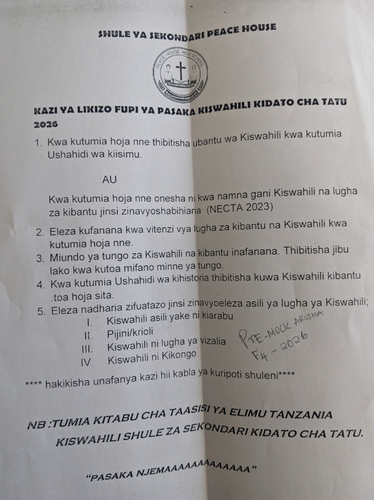 SHULE YA SEKONDARI PEACE HOUSE
KAZI YA LIKIZO FUPI YA PASAKA KISWAHILI KIDATO CHA TATU
2026
1. Kwa kutumia hoja nne thibitisha ubantu wa Kiswahili kwa kutumia
Ushahidi wa kiisimu.
AU
Kwa kutumia hoja nne onesha ni kwa namna gani Kiswahili na lugha
za kibantu jinsi zinavyoshabihiana (NECTA 2023)
2. Eleza kufanana kwa vitenzi vya lugha za kibantu na Kiswahili kwa
kutumia hoja nne.
3. Miundo ya tungo za Kiswahili na kibantu inafanana. Thibitisha jibu
lako kwa kutoa mifano minne ya tungo.
4. Kwa kutumia Ushahidi wa kihistoria thibitisha kuwa Kiswahili kibantu
.toa hoja sita.
5. Eleza nadharia zifuatazo jinsi zinavyoeleza asili ya lugha ya Kiswahili;
I. Kiswahili asili yake ni kiarabu
II. Pijini/krioli
III. Kiswahili ni lugha ya vizalia
IV. Kiswahili ni Kikongo
PRE-MOCK ARUSHA
F4-2026
**** hakikisha unafanya kazi hii kabla ya kuripoti shuleni****
NB :TUMIA KITABU CHA TAASISI YA ELIMU TANZANIA
KISWAHILI SHULE ZA SEKONDARI KIDATO CHA TATU.
"PASAKA NJEMAAAAAAAAAAAAA"